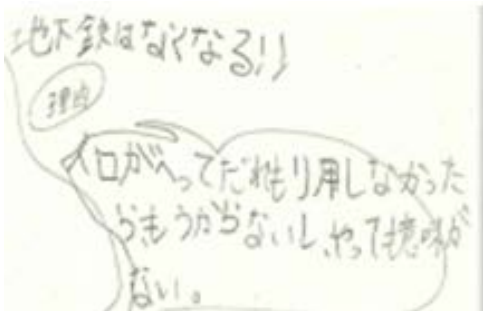 地下鉄はなくなる!!
理由
人口がへってだれもり用しなかった
らもうからないし、やっても意味が
ない。